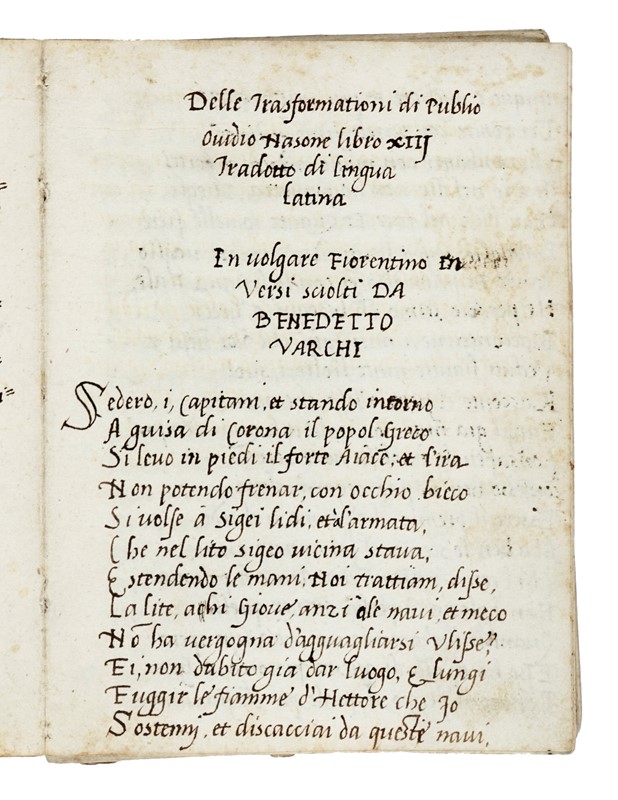 Delle Trasformationi di Publio
Ouidio Nasone libro xiij
Tradotto di lingua
latina
In volgare Fiorentino in
Versi sciolti DA
BENEDETTO
VARCHI
Sedero, i, Capitani, et stando intorno
A guisa di Corona il popol Greco
Si leuo in piedi il forte Aiace, et l'ira
Non potendo frenar, con occhio bieco
Si volse à Sigei lidi, et à l'armata,
Che nel lito sigeo uicina staua;
E stendendo le mani, Noi trattiam, disse,
La lite, ahi Gioue, anzi à le naui, et meco
Nō ha vergogna d'agguagliarsi Vlisse?
Ei, non dubito gia dar luogo, E lungi
Fuggir le fiamme d'Hettore che Io
Sostenni, et discacciai da queste naui,